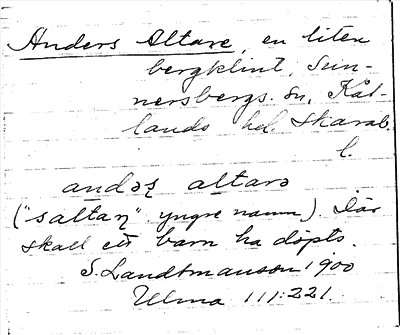 Anders Altare, en liten
bergklint, Sun-
nersbergs sn, Kål-
lands hd. Skarab.
l.
andəʂ altarə
("saltaɳ" yngre namn). Där
skall ett barn ha döpts.
S. Landtmanson 1900
Ulma 111:221.